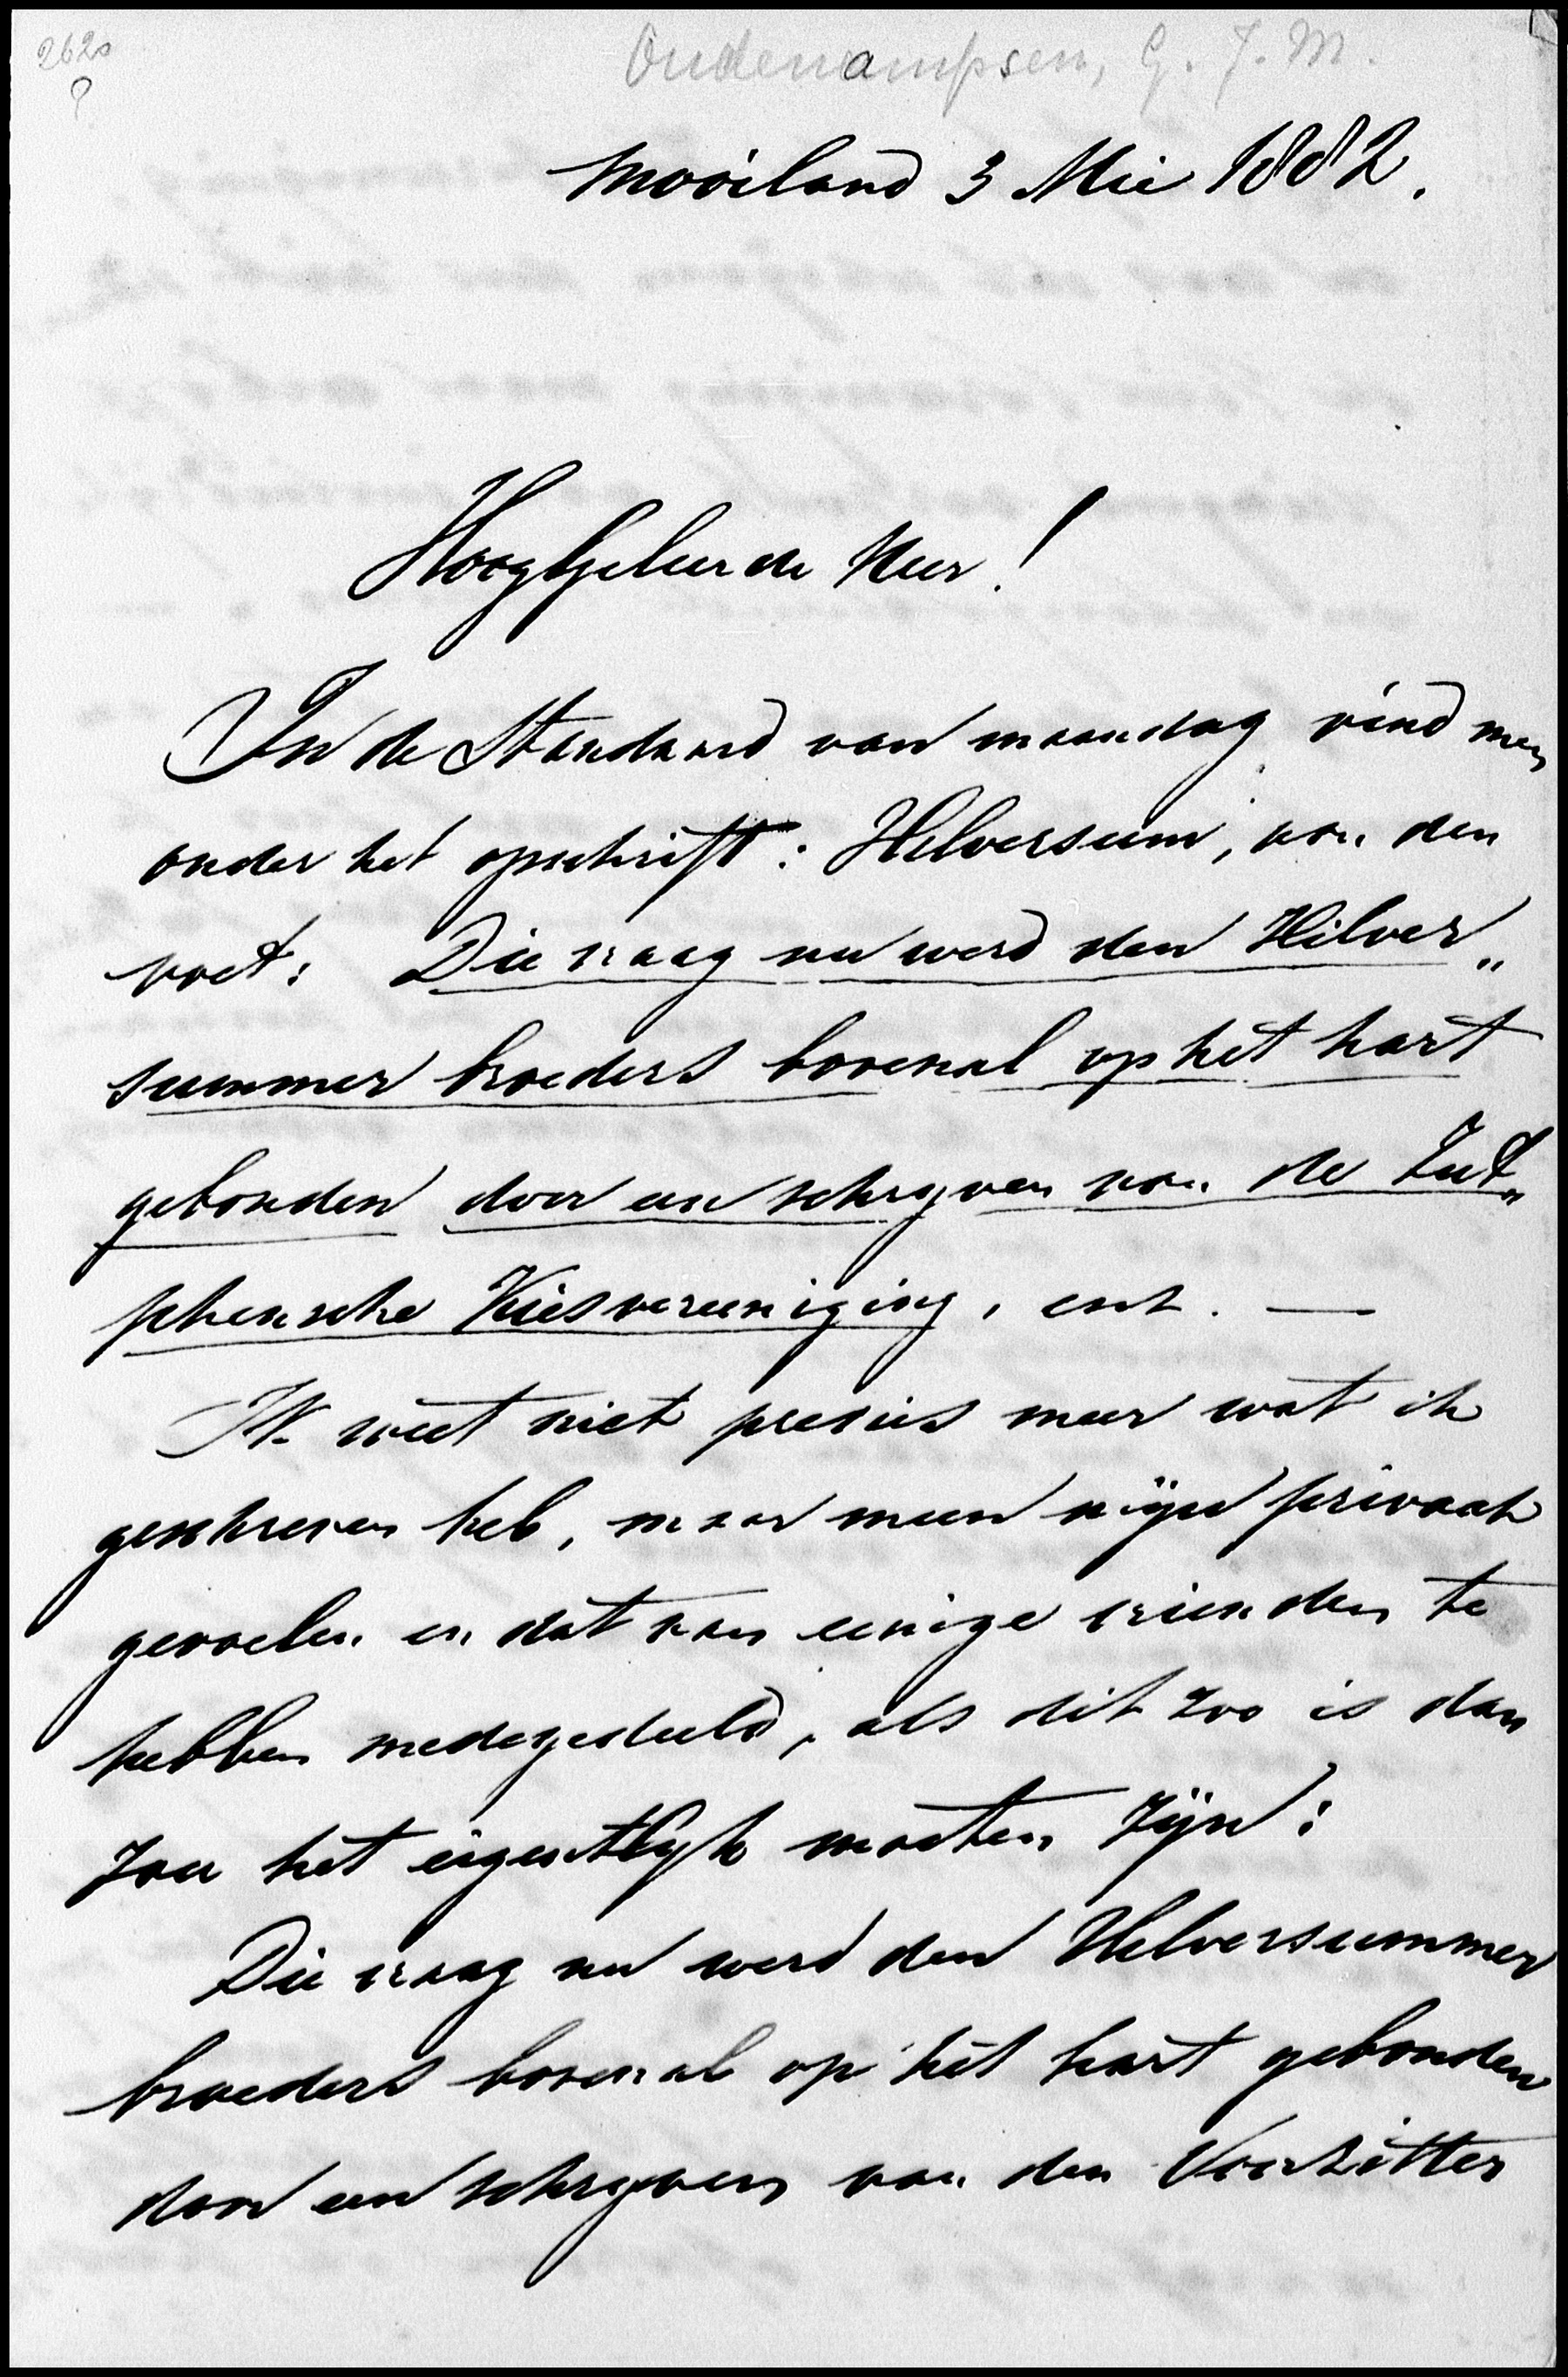 2620
?
Oudenampsen, G. J. M.
Mooiland 3 Mei 1882.
HoogGeleerde Heer!
In de Standaard van maandag vind men
onder het opschrift: Hilversum, aan den
voet: Die vraag nu werd den Hilver„
summer broeders bovenal op het hart
gebonden door een schryven van de Zut„
phensche Kiesvereeniging, enz. —
Ik weet niet precies meer wat ik
geschreven heb, maar meen mijn privaat
gevoelen en dat van eenige vrienden te
hebben medegedeeld, als dit zoo is dan
zou het eigentlyk moeten zijn:
Die vraag nu werd den Hilversummer
broeders bovenal op het hart gebonden
door een schryven van den Voorzitter